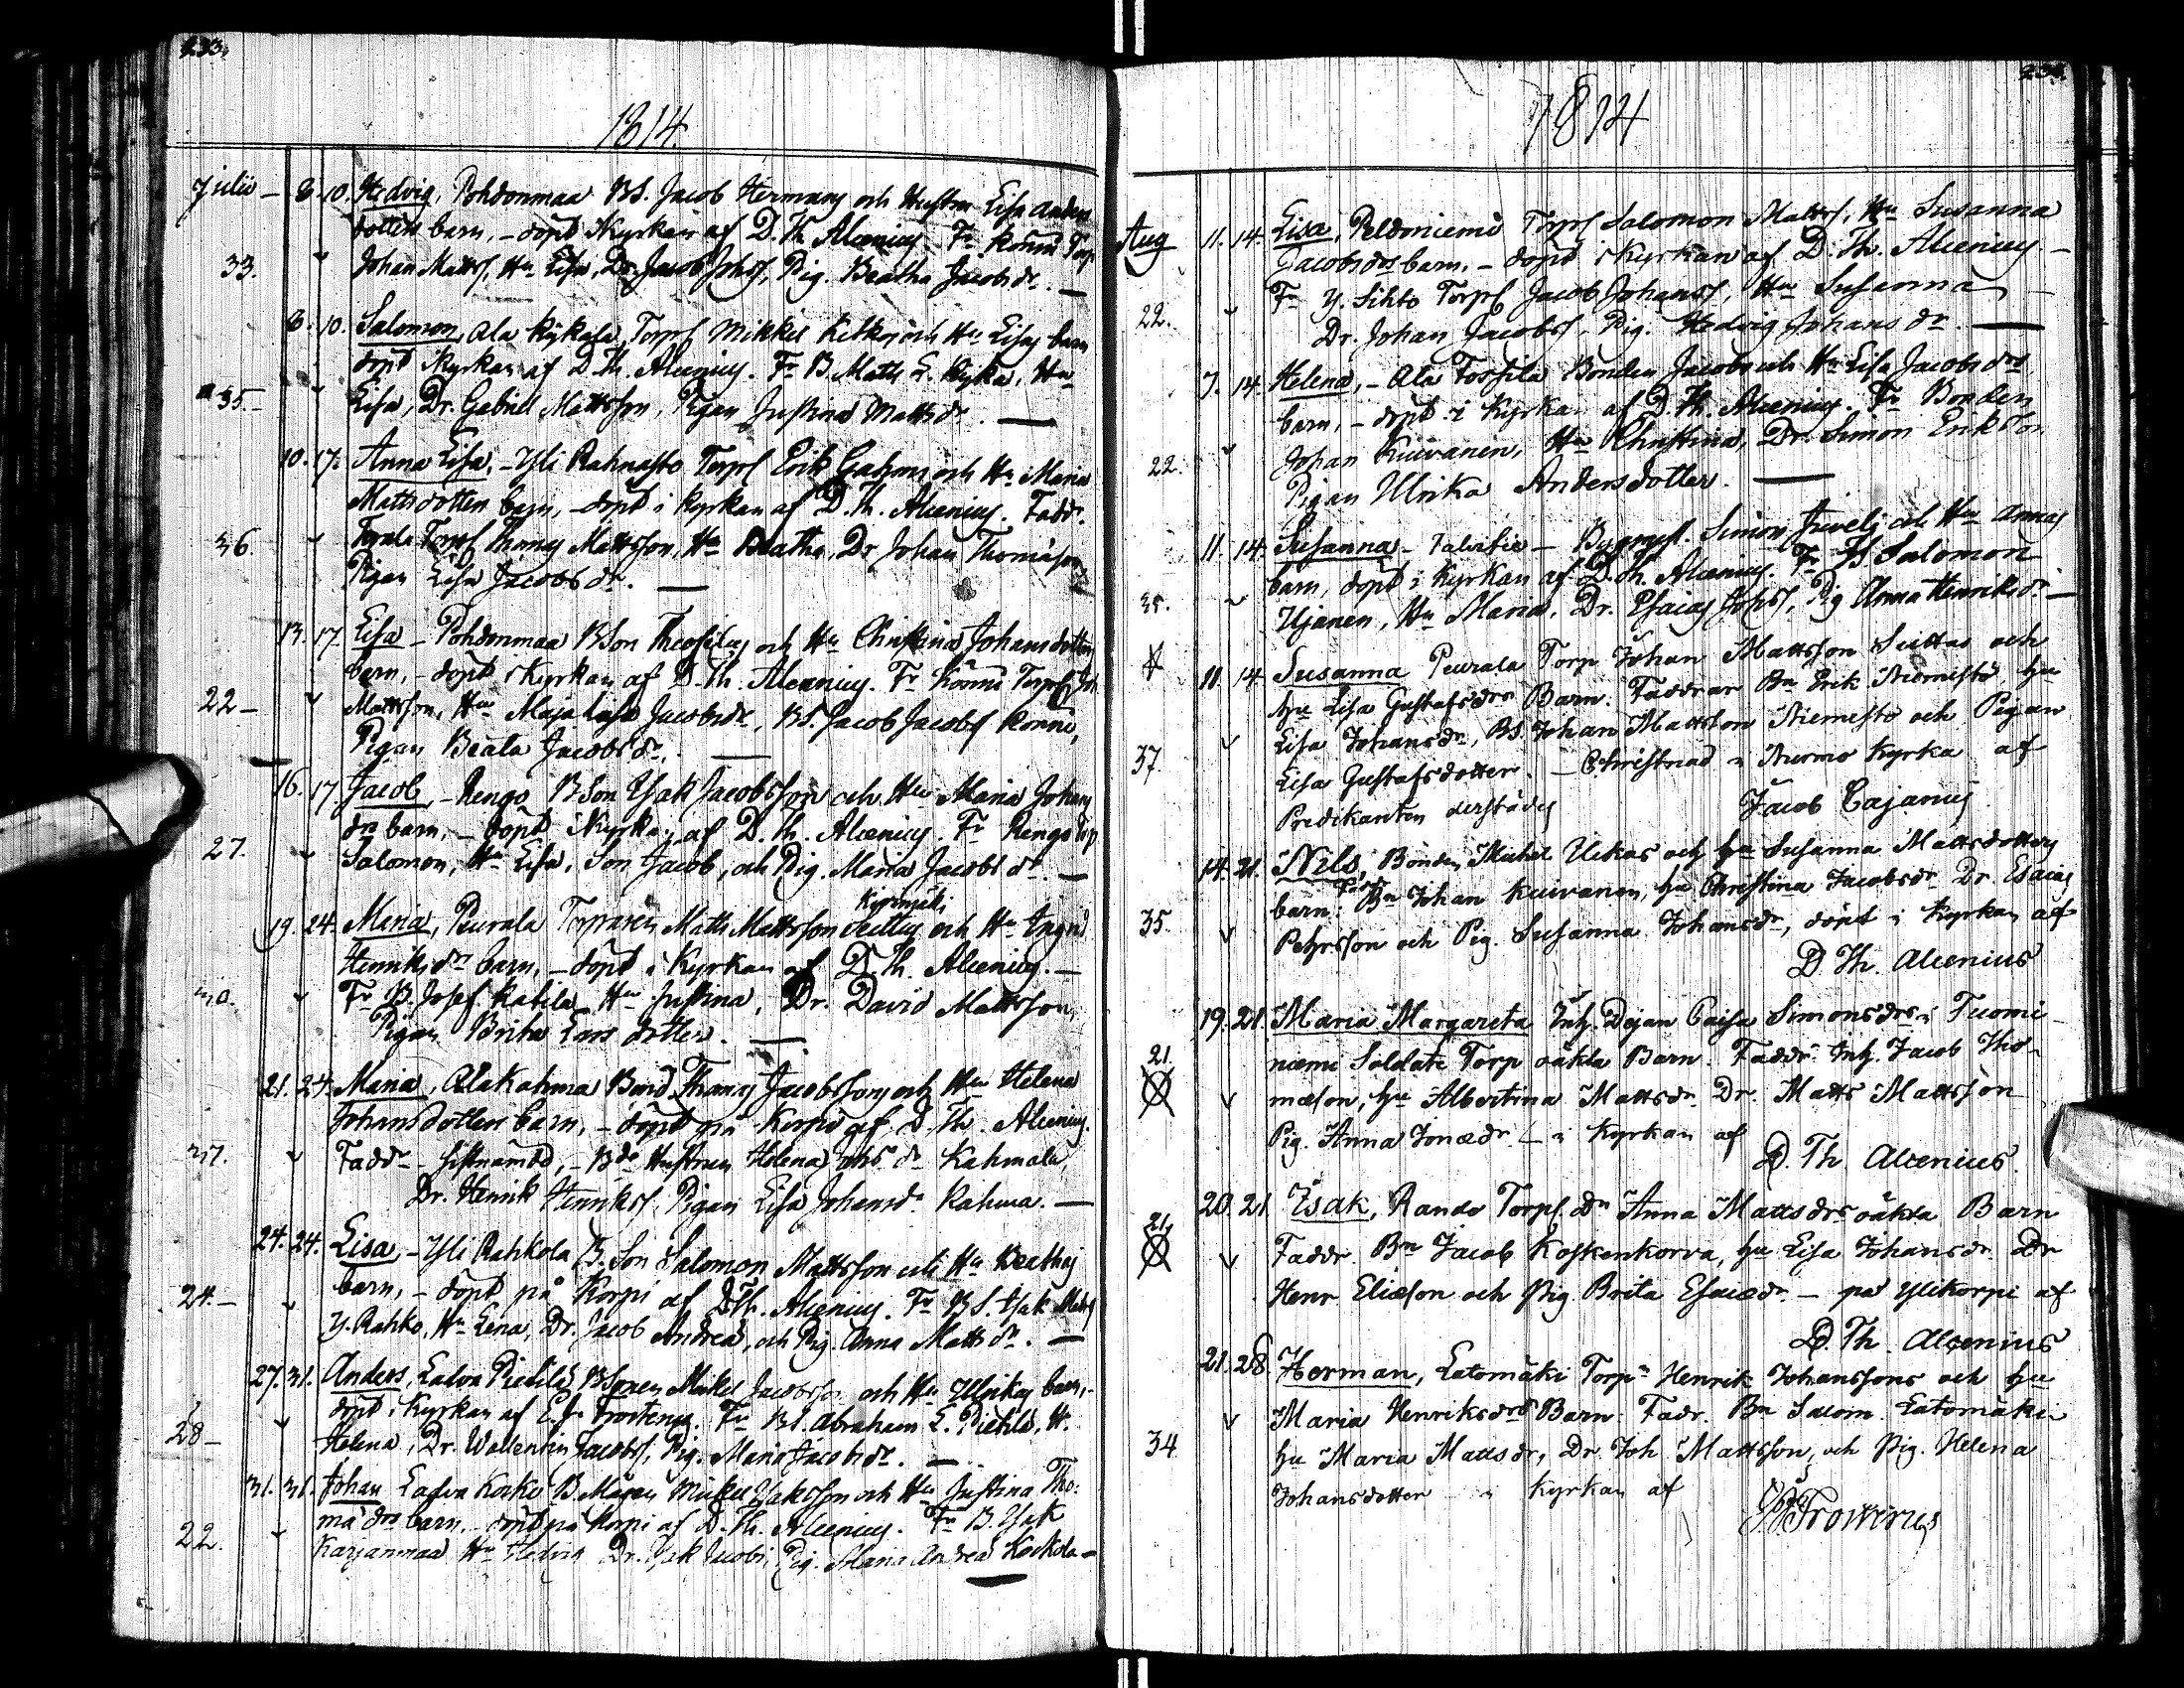 233.
1814.
Julii – 8. 10. Hedvig, Pohdonmaa BS. Jacob Hermans och Hustru Lisa Anders
dotters barn, – döpt i Kyrkan af D. Th. Alcenius. Fr Könni Torp
33. Johan Matts, Hu Lisa, Dr. Jacob Johs, Pig. Beatha Jacobs dr. —
8. 10. Salomon, Ala Kykala, Torps Mikkel och Hu Lisas barn
döpt i Kyrkan af D. Th. Alcenius. Fr B. Matts L. Kyka, Hu
35. – Lisa, Dr. Gabriel Mattsson, Pigan Justina Matts dr. —
10. 17. Anna Lisa, – Yli Rahnasto Torps Erik och Hu Maria
Mattsdotters barn, – döpt i Kyrkan af D. Th. Alcenius. Fadd.
36. Torps Thomas Mattsson, Hu Beatha, Dr Johan Thomasson
Pigan Lisa Jacobs dr. —
13. 17. Lisa – Pohdonmaa BSon Theofilus och Hu Christina Johansdotters
barn, – döpt i Kyrkan af D. Th. Alcenius. Fr Könni Torps Joh
22 – Mattsson, Hu Maja Lisa Jacobsdr, BS. Jacob Jacobs Könni,
Pigan Beata Jacobs dr. —
16. 17 Jacob, – Rengo BSon Isak Jacobsson och Hu Maria Johans
drs barn, – döpt i Kyrkan af D. Th. Alcenius. Fr Rengo Torp
27. Salomon, Hu Lisa, Son Jacob, och Pig. Maria Jacobs dr. —
19. 24. Maria, Peurala Torparen Matts Mattsson och Hu Ingrid
Henriks drs barn, – döpt i Kyrkan af D. Th. Alcenius. –
30. Fr B. Josef Katila, Hu Justina, Dr. David Mattsson,
Pigan Brita Lars dotter. —
21. 24. Maria, Ala Kahma Bond. Thomas Jacobssons och Hu Helena
Johansdotters barn, – döpt på Korpi af D. Th. Alcenius.
37. Fadd – – Bde Hustrun Helena Johs dr Kahmala,
Dr. Henrik Henriks, Pigan Lisa Johansdr Kahma. —
24. 24. Lisa, – Yli Rahkola B. Son Salomon Mattsson och Hu Beathas
barn, – döpt på Korpi af D. Th. Alcenius. Fr BS. Isak Matts
24. – Y. Rahko, Hu Lena, Dr. Jacob Andreæ, och Pig. Anna Matts dr. —
27. 31. Anders, Latva Pietilä, BSonen Mickel Jacobsson och Hu Ulrikas barn,
döpt i Kyrkan af Frosterus. Fr BS. Abraham L. Pietilä, H.
28 – Helena, Dr. Wallentin Jacobs, Pig. Maria Jacobs dr. —
31. 31. Johan Latva Kocko B. Mågen Mickel Isaksson och Hu Justina Tho-
mæ drs barn, – döpt på Korpi af D. Th. Alcenius. Fr B. Isak
22. Karjanmaa Hu Hedvig Dr. Isak Jacobs, Pig. Maria Andreæ Kockola –
234.
1814
Aug 11. 14. Lisa, Peldoniemi Torps Salomon Matts, Hu Susanna
Jacobs drs barn, – döpt i Kyrkan af D. Th. Alcenius –
22. Fr Y. Sihto Torps Jacob Johans, Hu Susanna
Dr. Johan Jacobs, Pig. Hedvig Johans dr. —
7. 14. Helena, – Ala Fossila Bonden Jacobs och Hu Lisa Jacobs drs
barn, – döpt i Kyrkan af D. Th. Alcenius. Fr Bonden
22. Johan Kuivanen, Hu Christina, Dr. Simon Eriksson
Pigan Ulrika Andersdotter. —
11. 14. Susanna – Talvitie – Simon och Hu Annas
barn, döpt i Kyrkan af D. Th. Alcenius. Fr B Salomon
35. Ujanen, Hu Maria, Dr. Esaias Johs, Pig Anna Henriks dr –
11. 14 Susanna Peurala Torp Johan Mattsson och
Hu Lisa Gustafsdrs Barn: Faddrar Bn Erik Niemistö, Hu
37 Lisa Johansdr, BS. Johan Mattsson Niemistö och Pigan
Lisa Gustafsdotter. – Christnad i Nurmo Kyrka af
Predikanten derstädes Jacob Cajanus
14. 21. Nils, Bonden Michel Uckas och hu Susanna Mattsdotters
barn: Fadd Bn Johan Kuivanen, hu Christina Jacobsdr Dr. Esaias
35. Pehrsson och Pig. Susanna Johansdr, döpt i Kyrkan af
D. Th. Alcenius
19. 21. Maria Margareta Inh. Dejan Caisa Simonsdrs i Tuomi-
21. niemi Soldate Torp oäkta Barn. Faddr. Inh. Jacob Tho-
mæson, hu Albertina Mattsdr Dr. Matts Mattsson
Pig. Anna Jonædr – i Kyrkan af
D. Th Alcenius.
20. 21 Isak, Rando Torps dr Anna Mattsdrs oäkta Barn
21. Faddr. Bn Jacob Koskenkorva, hu Lisa Johansdr Dr
Henr Eliæson och Pig Brita Esaiædr – på Ylikorpi af
D. Th. Alcenius
21. 28. Herman, Latomäki Torpn Henrik Johanssons och hu
Maria Henriksdrs Barn. Fadr. Bn Salom. Latomäki
34 hu Maria Mattsdr, Dr. Joh Mattsson, och Pig. Helena
Johansdotter i Kyrkan af
Frosterus